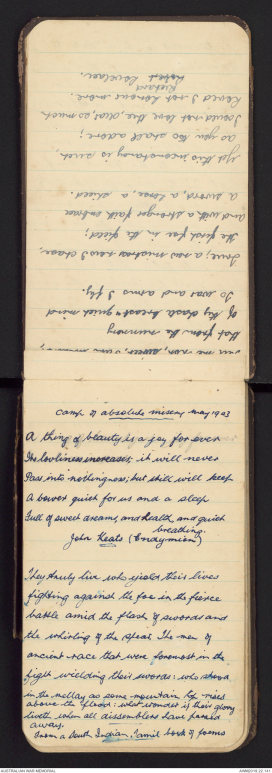 tell me not, sweet, I am unkind,
that from the nunnery
of thy chaste breast and quiet mind
To war and arms I fly.
True; a new mistress now I chase,
the first foe in the field;
and with a stronger faith embrace
a sword, a horse, a shield.
Yet this inconstancy is such,
as you too shall adore;
I could not love thee, dear, so much
Loved I not honour more.
Richard
Robert Lovelace.
Camp of absolute misery May 1943
A thing of beauty is a joy for ever
Its loveliness increases; it will never
Pass into nothingness; but still will keep
A bower quiet for us and a sleep
Full of sweet dreams, and health, and quiet
breathing.
John Keats (Endymion)
They truly live who yield their lives
fighting against the foe in the fierce
battle amid the flash of swords and
the whirling of the spear. The men of
ancient race that were foremost in the
fight wielding their swords: who stand
in the mellay as some mountain by rises
above the flood: what wonder is their glory
liveth when all dissemblers have passed
away.
From a South Indian, Tamil book of poems
AUSTRALIAN WAR MEMORIAL